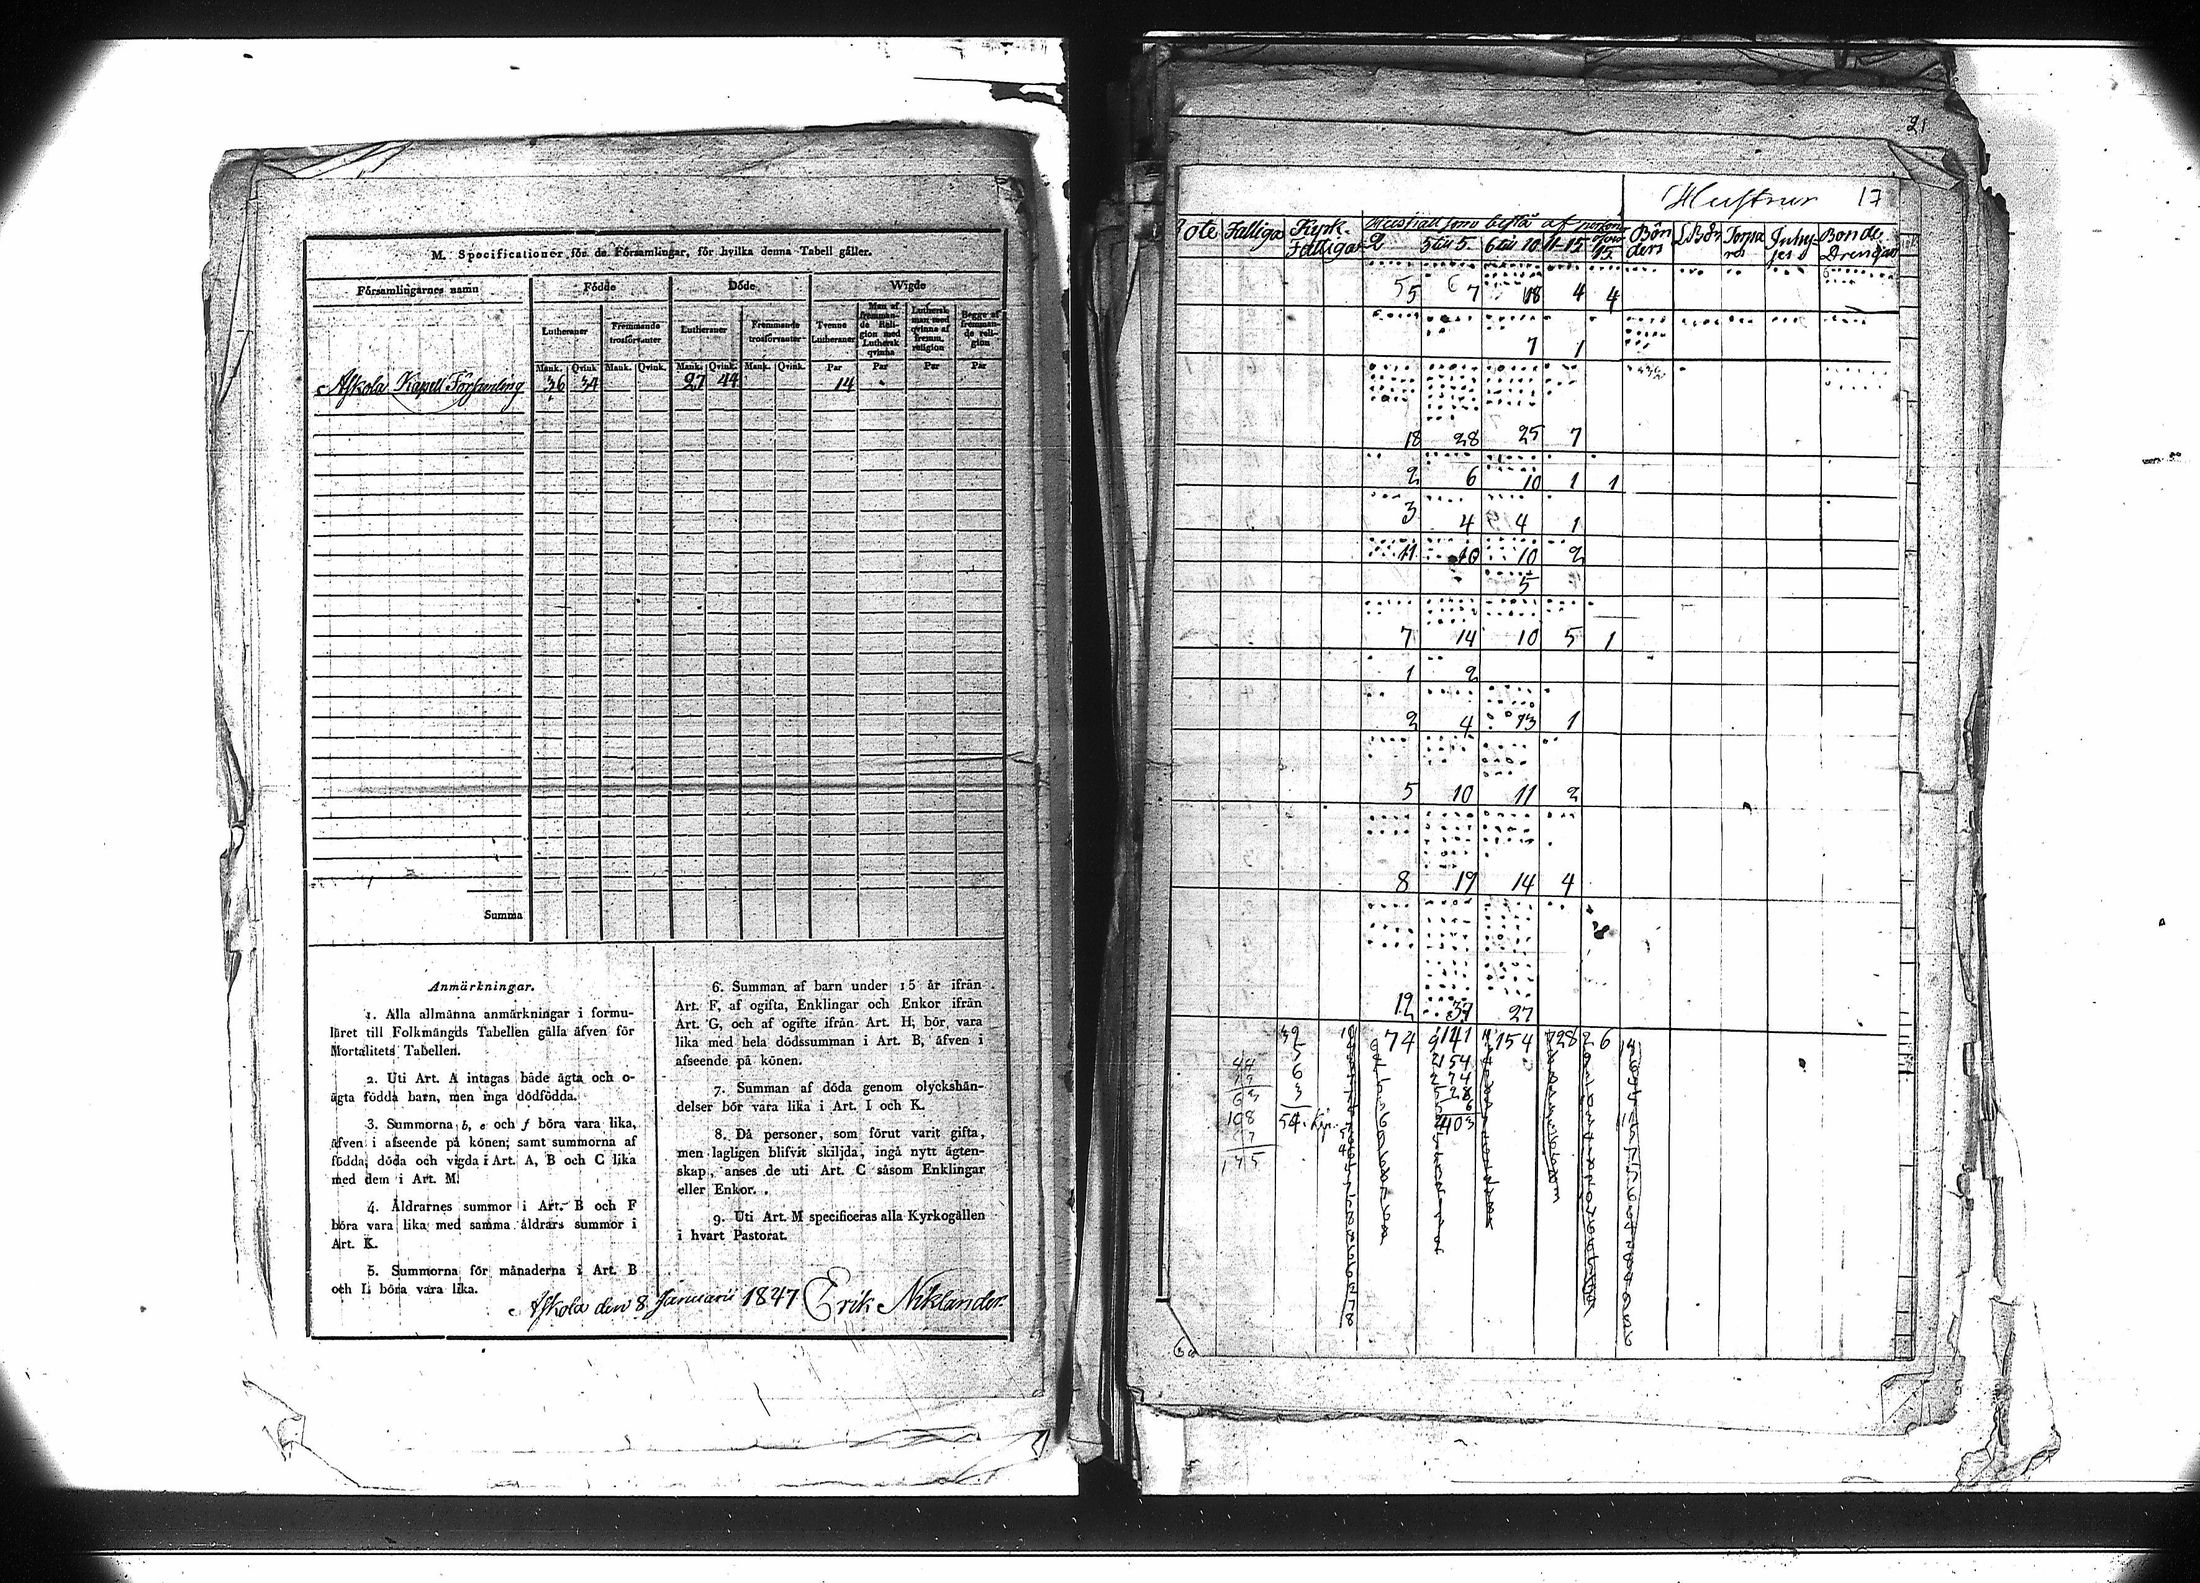 M. Specificationer för de Församlingar, för hvilka denna Tabell gäller.
Församlingarnes namn Födde Döde Wigde
Lutheraner Fremmande trosförvanter Lutheraner Fremmande trosförvanter Tvenne Lutheraner Man af fremmande Religion med Luthersk qvinna Luthersk man med qvinna af fremm. religion Begge af fremmande religion
Mank. Qvink. Mank. Qvink. Mank. Qvink. Mank. Qvink. Par Par Par Par
Askola Kapell Församling 36 34 27 44 14
Summa
Anmärkningar.
1. Alla allmänna anmärkningar i formu-
läret till Folkmängds Tabellen gälla äfven för
Mortalitets Tabellen.
2. Uti Art. A intagas både ägta och o-
ägta födda barn, men inga dödfödda.
3. Summorna b, e och f böra vara lika,
äfven i afseende på könen; samt summorna af
födda, döda och vigda i Art. A, B och C lika
med dem i Art. M.
4. Åldrarnes summor i Art. B och F
böra vara lika med samma åldrars summor i
Art. K.
5. Summorna för månaderna i Art. B
och L böra vara lika.
6. Summan af barn under 15 år ifrån
Art. F, af ogifta, Enklingar och Enkor ifrån
Art. G, och af ogifte ifrån Art. H, bör vara
lika med hela dödssumman i Art. B, äfven i
afseende på könen.
7. Summan af döda genom olyckshän-
delser bör vara lika i Art. I och K.
8. Då personer, som förut varit gifta,
men lagligen blifvit skiljda, ingå nytt ägten-
skap, anses de uti Art. C såsom Enklingar
eller Enkor.
9. Uti Art. M specificeras alla Kyrkogällen
i hvart Pastorat.
Askola den 8 Januarii 1847 Erik Niklander.
21
Hustrur 17
Rote Fattiga Kyrk. Fattigas Hushåll som bestå af personer
2 3 till 5 6 till 10 11-15 öfver 15 Bönder Torpa res Inhyjes Bonde Drengar
55 67 18 4 4
7 1
18 28 25 7
2 6 10 1 1
3 4 4 1
11 10 10 2
5
7 14 10 5 1
1 2
2 4 13 1
5 10 11 2
8 19 14 4
12 37 27
74 141 154 28 6
154
74
28
6
403
54
108